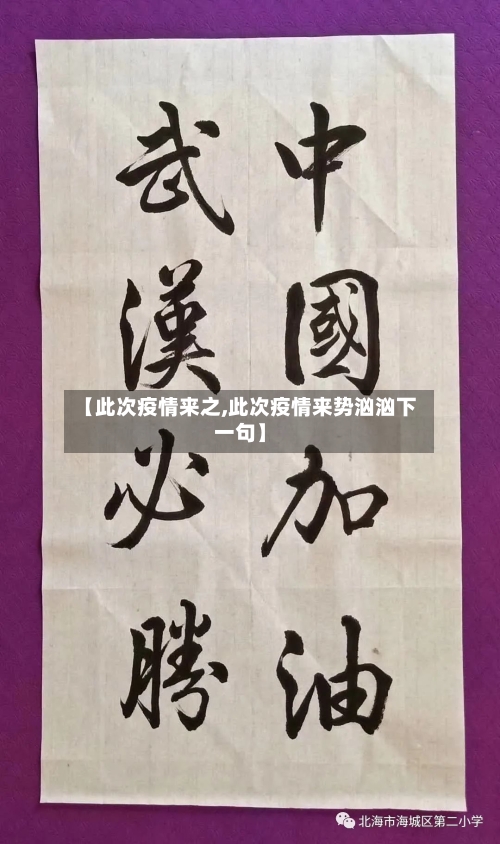 中國加油
武漢必勝
【此次疫情来之,此次疫情来势汹汹下
一句】
北海市海城区第二小学